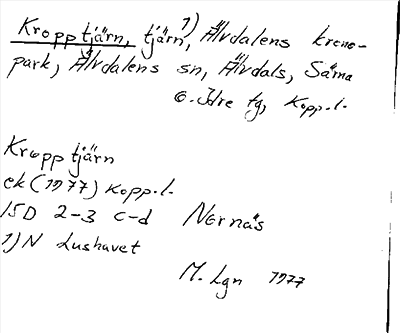 Kropptjärn, tjärn, 1) Älvdalens krono-
park, Älvdalens sn, Älvdals, Särna
o. Idre tg, Kopp.l.
Kropptjärn
ek (1977) Kopp.l.
15D 2-3 c-d Nornäs
1) N Lushavet
M. Lgn 1977